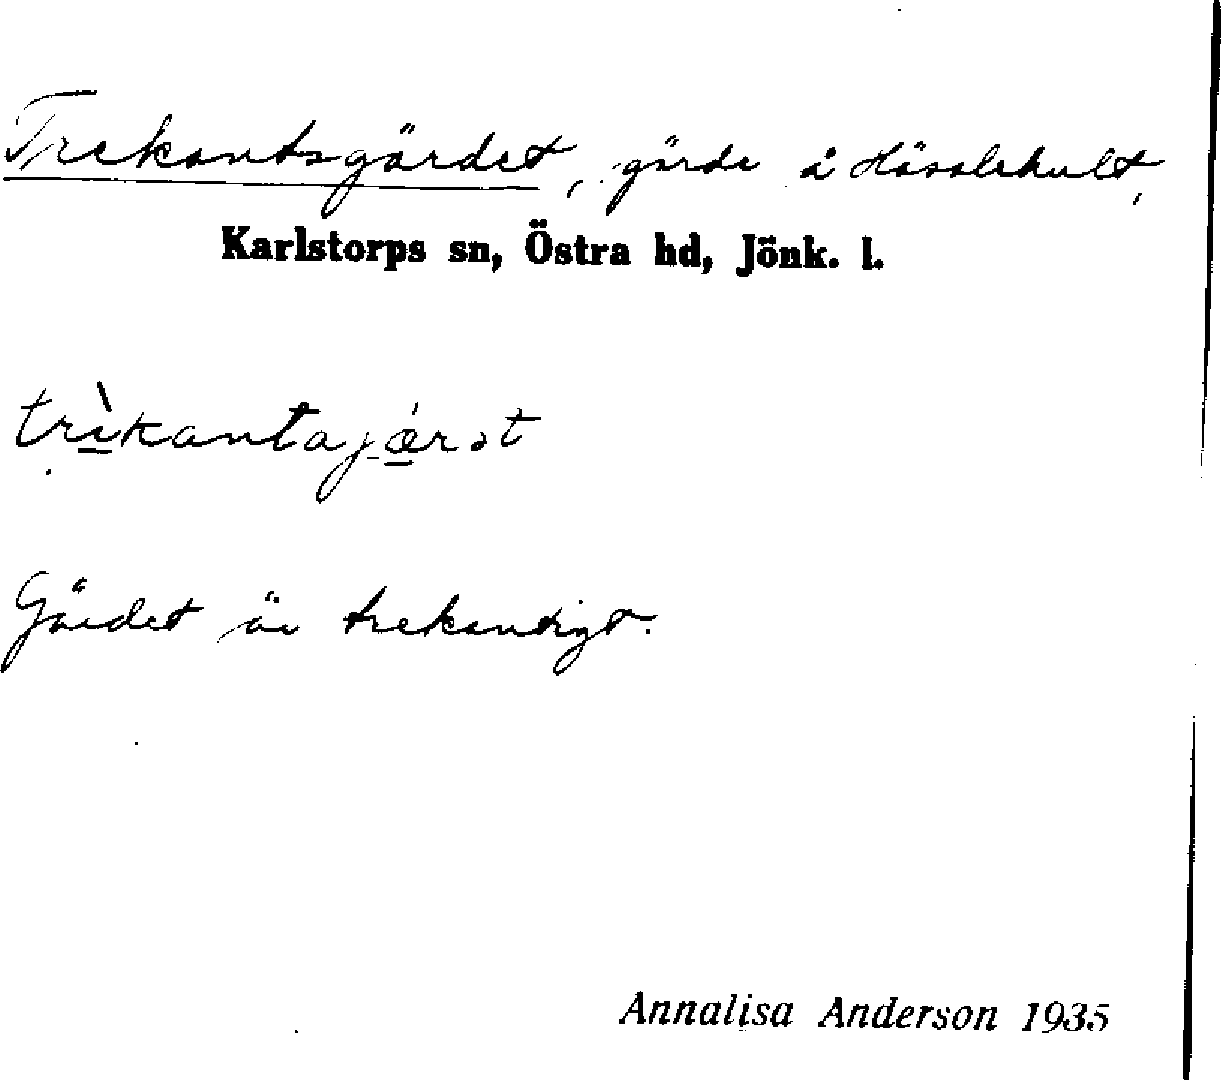 Trekantsgärdet, gärde å Hässlehult,
Karlstorps sn, Östra hd, Jönk. l.
trìkantajǽrət
Gärdet är trekantigt.
Annalisa Anderson 1935